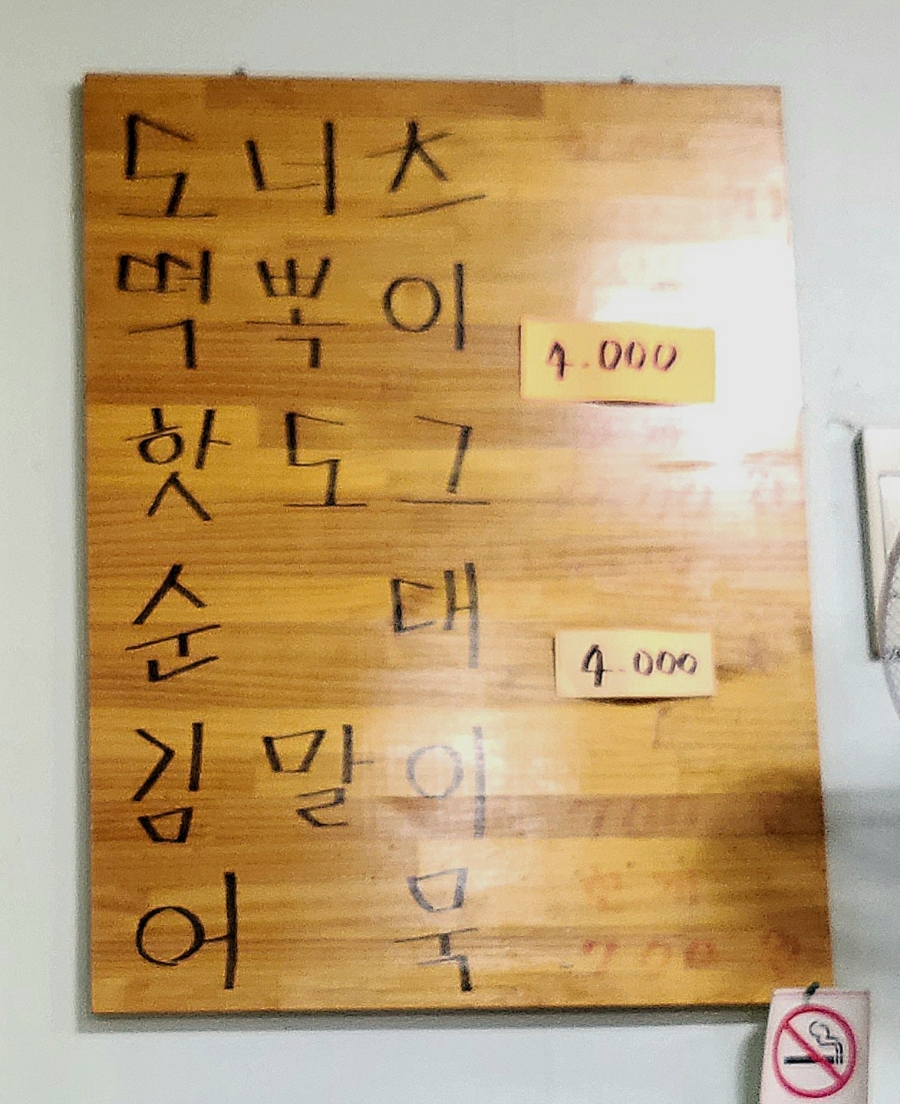 도너츠
떡뽁이
4.000
핫도그
순대
4.000
김말이
어묵